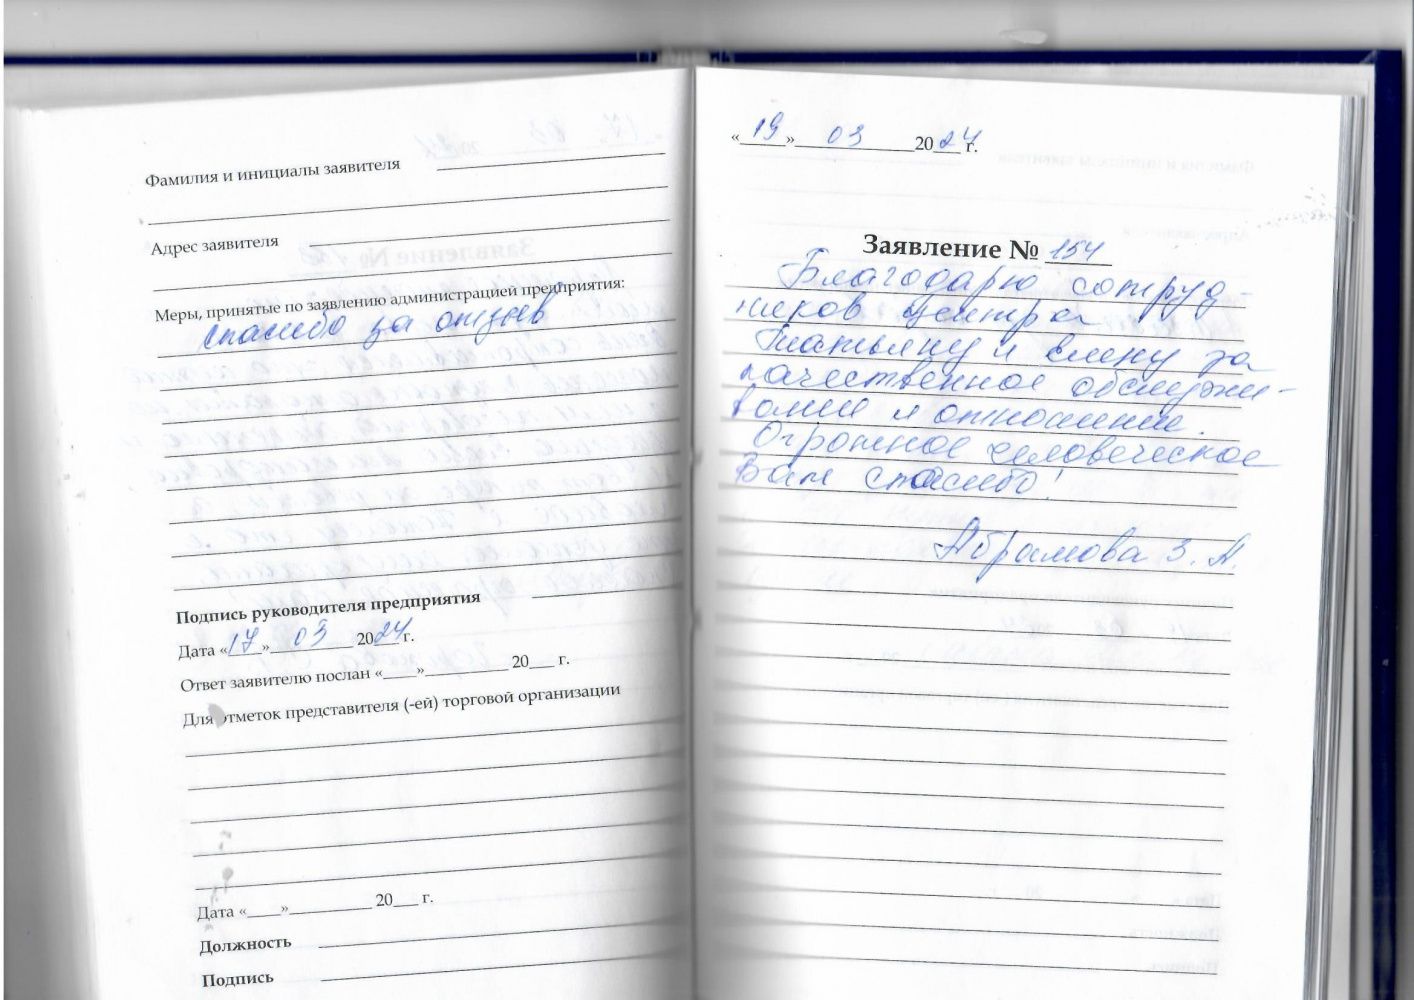 Фамилия и инициалы заявителя
Адрес заявителя
Меры, принятые по заявлению администрацией предприятия:
спасибо за отзыв
Подпись руководителя предприятия
Дата «17» 03 2024 г.
Ответ заявителю послан «____»__________ 20___ г.
Для отметок представителя (-ей) торговой организации
Дата «____»__________ 20___ г.
Должность
Подпись
«19» 03 2024 г.
Заявление № 154
Благодарю сотруд-
ников центра
Татьяну и Елену за
качественное обслужи-
вание и отношение.
Огромное человеческое
Вам спасибо!
Абрамова З. А.